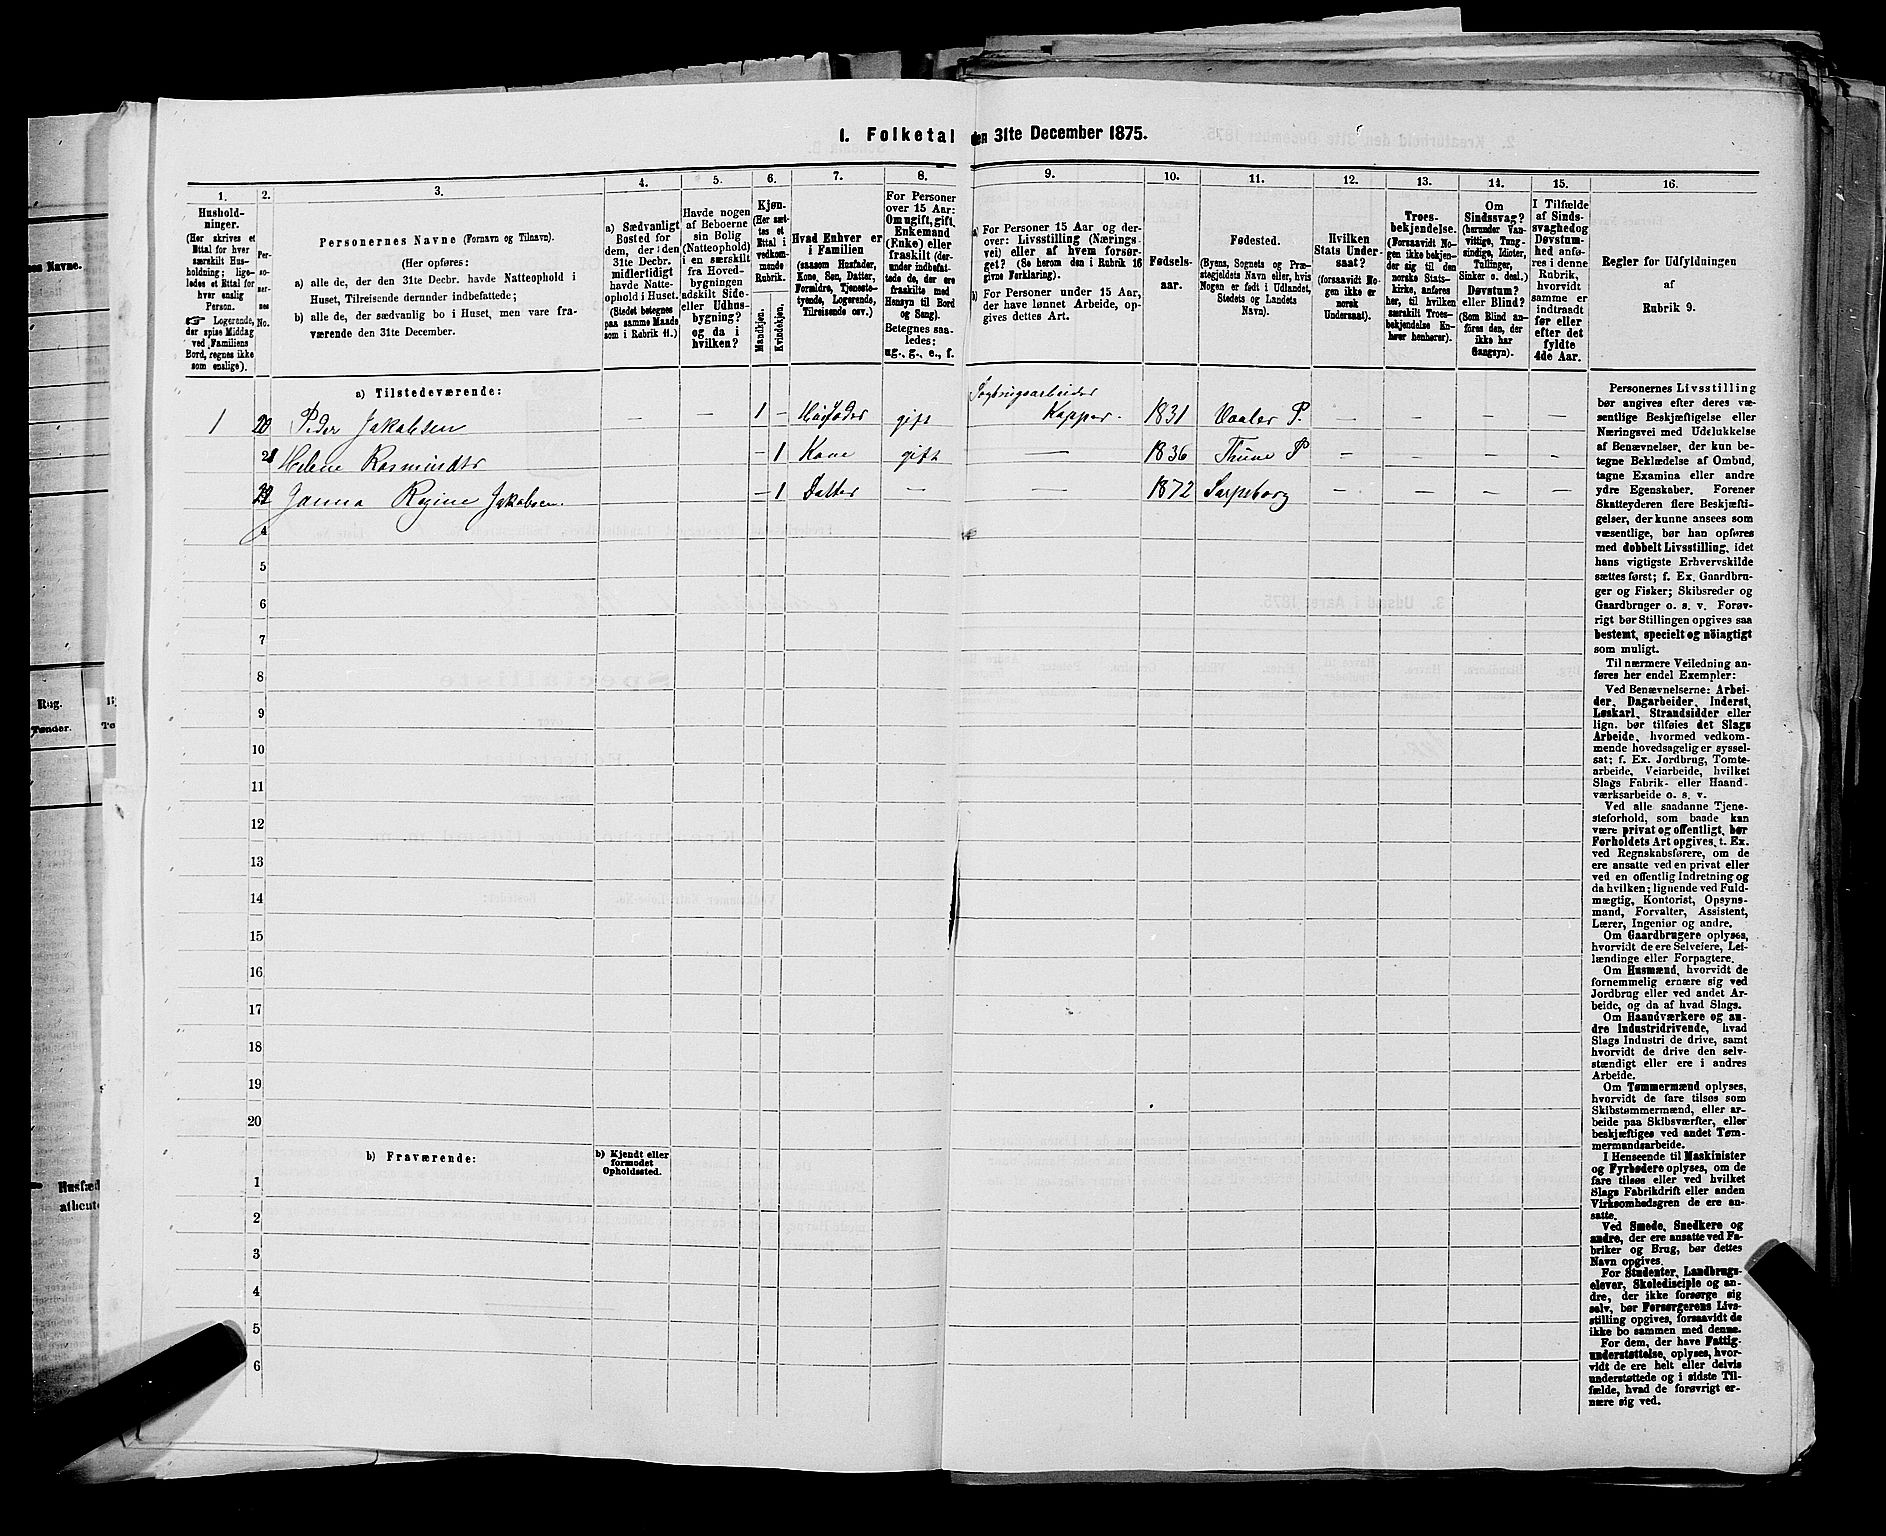 1. Folketal den 31te December 1875.
1. 2. 3. 4. 5. 6. 7. 8. 9. 10. 11. 12. 13. 14. 15. 16.
Hushold-
ninger.
(Her skrives et
Ettal for hver
særskilt Hus-
holdning; lige-
ledes et Ettal for
hver enslig
Person.
☞ Logerende,
der spise Middag
ved Familiens
Bord, regnes ikke
som enslige).
Per-
so-
ner-
nes
No.
Personernes Navne (Fornavn og Tilnavn).
(Her opføres:
a) alle de, der den 31te Decbr. havde Natteophold i
Huset, Tilreisende derunder indbefattede;
b) alle de, der sædvanlig bo i Huset, men vare fra-
værende den 31te December.
a) Sædvanligt
Bosted for
dem, der i den
31te Decbr.
midlertidigt
havde Natte-
ophold i Huset.
(Stedet betegnes
paa samme Maade
som i Rubrik 11.)
Havde nogen
af Beboerne
sin Bolig
(Natteophold)
i en særskilt
fra Hoved-
bygningen
adskilt Side-
eller Udhus-
bygning?
og da i
hvilken?
Kjøn.
(Her sæt-
tes et
Ettal i
vedkom-
mende
Rubrik.
Mandkjøn.
Kvindekjøn.
Hvad Enhver er
i Familien
(saasom Husfader,
Kone, Søn, Datter,
Forældre, Tjeneste-
tyende, Logerende,
Tilreisende osv.)
For Personer
over 15 Aar:
Om ugift, gift,
Enkemand
(Enke) eller
fraskilt (der-
under indbefat-
tede de, der ere
fraskilte med
Hensyn til Bord
og Seng).
Betegnes saa-
ledes:
ug., g., e., f.
a) For Personer 15 Aar og der-
over: Livsstilling (Nærings-
vei) eller af hvem forsør-
get? (Se herom den i Rubrik 16
givne Forklaring).
b) For Personer under 15 Aar,
der have lønnet Arbeide, op-
gives dettes Art.
Fødsels-
aar.
Fødested.
(Byens, Sognets og Præ-
stegjeldets Navn eller, hvis
Nogen er født i Udlandet,
Stedets og Landets
Navn).
Hvilken
Stats Under-
saat?
(forsaavidt No-
gen ikke er
norsk
Undersaat).
Troes-
bekjendelse.
(Forsaavidt No-
gen ikke bekjen-
der sig til den
norske Stats-
kirke, anføres
her, til hvilken
særskilt Troes-
bekjendelse En-
hver henhører).
Om
Sindssvag?
(herunder Van-
vittige, Tung-
sindige, Idioter,
Tullinger,
Sinker o. desl.)
Døvstum?
eller Blind?
(Som Blind an-
føres den, der
ikke har
Gangsyn).
I Tilfælde
af Sinds-
svaghed og
Døvstum-
hed anfø-
res i denne
Rubrik,
hvorvidt
samme er
indtraadt
før eller
efter det
fyldte
4de Aar.
Regler for Udfyldningen
af
Rubrik 9.
a) Tilstedeværende:
1 20 Peder Jakobsen — — 1 — Husfader gift Sagbrugsarbeider Kapper. 1831 Vaaler P. — — — —
21 Helene Rasmindtr — 1 Kone gift — 1836 Thune P — — — —
22 Janna Regine Jakobsen. — 1 Datter — — 1872 Sarpsborg — — — —
4
5
6
7
8
9
10
11
12
13
14
15
16
17
18
19
20
b) Fraværende:
b) Kjendt eller
formodet
Opholdssted.
1
2
3
4
5
6
Personernes Livsstilling
bør angives efter deres væ-
sentlige Beskjæftigelse eller
Næringsvei med Udelukkelse
af Benævnelser, der kun be-
tegne Beklædelse af Ombud,
tagne Examina eller andre
ydre Egenskaber. Forener
Skatteyderen flere Beskjæfti-
gelser, der kunne ansees som
væsentlige, bør han opføres
med dobbelt Livsstilling, idet
hans vigtigste Erhvervskilde
sættes først; f. Ex. Gaardbru-
ger og Fisker; Skibsreder og
Gaardbruger o. s. v. Forøv-
rigt bør Stillingen opgives saa
bestemt, specielt og nöiagtigt
som muligt.
Til nærmere Veiledning an-
føres her endel Exempler:
Ved Benævnelserne: Arbei-
der, Dagarbeider, Inderst,
Løskarl, Strandsidder eller
lign. bør tilføies det Slags
Arbeide, hvormed vedkom-
mende hovedsagelig er syssel-
sat; f. Ex. Jordbrug, Tomte-
arbeide, Veiarbeide, hvilket
Slags Fabrik- eller Haand-
værksarbeide o. s. v.
Ved alle saadanne Tjene-
steforhold, som baade kan
være privat og offentligt, bør
Forholdets Art opgives, t. Ex.
ved Regnskabsførere, om de
ere ansatte ved en privat eller
ved en offentlig Indretning og
da hvilken; lignende ved Fuld-
mægtig, Kontorist, Opsyns-
mand, Forvalter, Assistent,
Lærer, Ingeniør og andre.
Om Gaardbrugere oplyses,
hvorvidt de ere Selveiere, Lei-
lændinge eller Forpagtere.
Om Husmænd, hvorvidt de
fornemmelig ernære sig ved
Jordbrug eller ved andet Ar-
beide, og da af hvad Slags.
Om Haandværkere og an-
dre Industridrivende, hvad
Slags Industri de drive, samt
hvorvidt de drive den selv-
stændigt eller ere i andres
Arbeide.
Om Tømmermænd oplyses,
hvorvidt de fare tilsøs som
Skibstømmermænd, eller ar-
beide paa Skibsværfter, eller
beskjæftiges ved andet Tøm-
mermandsarbeide.
I Henseende til Maskinister
og Fyrbødere oplyses, om de
fare tilsøs eller ved hvilket
Slags Fabrikdrift eller anden
Virksomhedsgren de ere an-
satte.
Ved Smede, Snedkere og
andre, der ere ansatte ved Fa-
briker og Brug, bør dettes
Navn opgives.
For Studenter, Landbrugs-
elever, Skoledisciple og an-
dre, der ikke forsørge sig
selv, bør Forsørgerens Livs-
stilling opgives, forsaavidt de
ikke bo sammen med denne.
For dem, der have Fattig-
understøttelse, oplyses, hvor-
vidt de ere helt eller delvis
understøttede og i sidste Til-
fælde, hvad de forøvrigt er-
nære sig ved.
Rug.
Tønder.